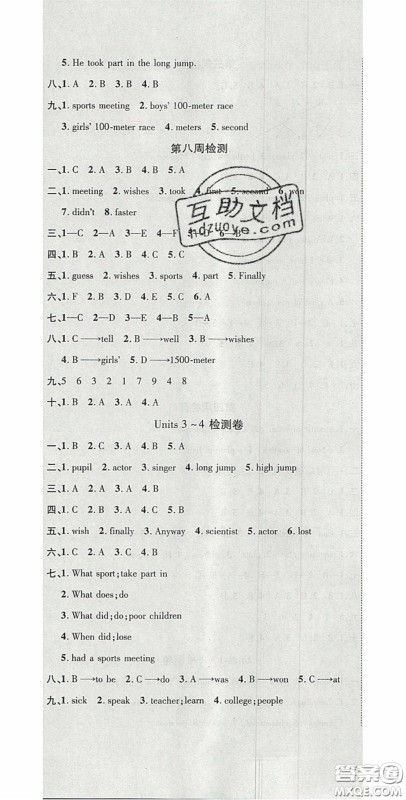 5. He took part in the long jump.
八、1. A 2. B 3. A 4. B
九、1. sports meeting 2. boys' 100-meter race
3. girls' 100-meter race 4. meters 5. second
第八周检测
一、1. C 2. A 3. B 4. B 5. A
二、1. meeting 2. wishes 3. took 4. first 5. second 6. won
7. didn't 8. faster
三、1—C 2—A 3—E 4—F 6—B
四、1. B 2. A 3. B 4. C 5. C
五、1. guess 2. wishes 3. sports 4. part 5. Finally
六、1. F 2. B 3. D 4. C 5. A
七、1—C 2—D 3—E 4—B 5—A
八、1. C→tell 2. B→well 3. B→wishes
4. B→girls' 5. D→1500-meter
九、5 6 3 2 1 7 9 4 8
十、1. B 2. A 3. A 4. A 5. B
Units 3~4 检测卷
一、1. C 2. B 3. C 4. B 5. A
二、1. pupil 2. actor 3. singer 4. long jump 5. high jump
三、1. A 2. A 3. A 4. B
四、1. C 2. B 3. A 4. C 5. C
五、1. wish 2. finally 3. Anyway 4. scientist 5. actor 6. lost
六、1. C 2. A 3. D 4. B
七、1. What sport;take part in
2. What does;do
3. What did;do;poor children
4. When did;lose
5. had a sports meeting
八、1. B→to be 2. C→do 3. A→was 4. B→won 5. C→at
九、1. sick 2. speak 3. teacher;learn 4. college;people
互助文档
hdzuoye.com
答案圈
MXQE.COM